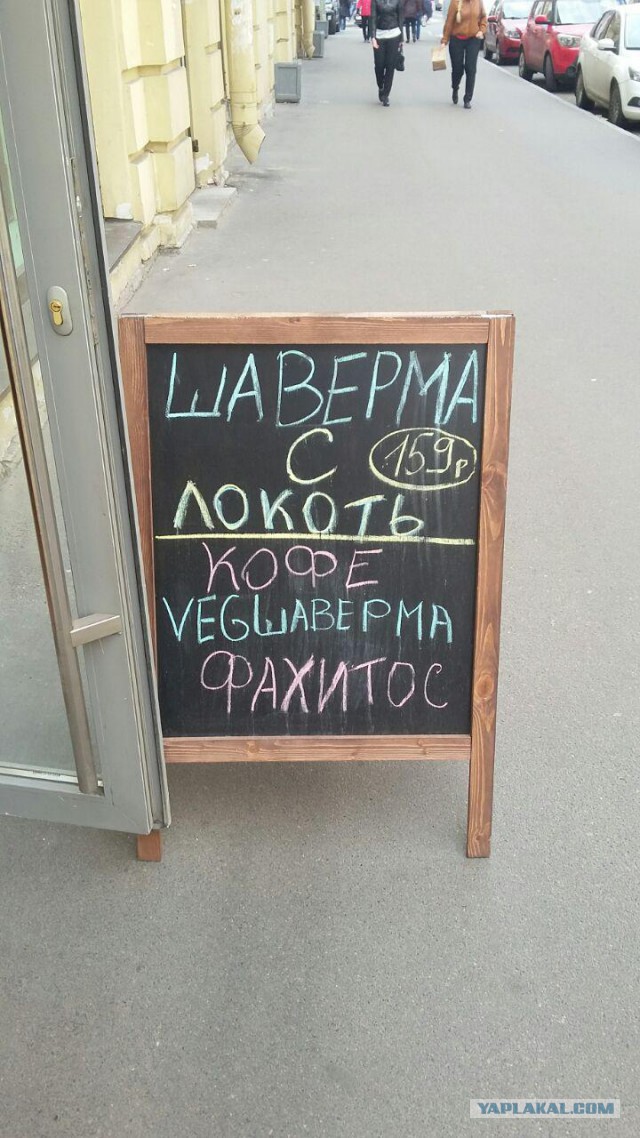 ШАВЕРМА
С 159р
ЛОКОТЬ
КОФЕ
VEGШАВЕРМА
ФАХИТОС
YAPLAKAL.COM